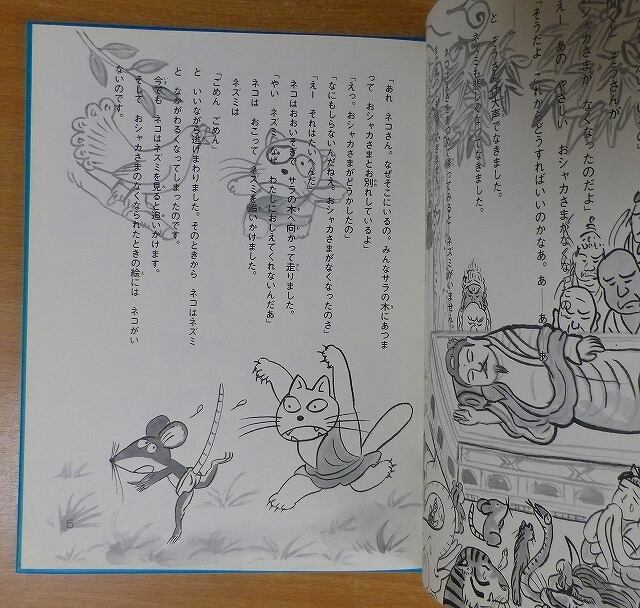 聞くと ぞうさんが
「おシャカさまが なくなったのだよ」
「えー あの やさしい おシャカさまがなくなったの
「そうだよ これからどうすればいいのかなあ。あ――あ
と ぞうさんは大声でなきました。
ネズミも悲しくなってなきました。
ネズミがいません。
「あれ ネコさん。なぜそこにいるの。みんなサラの木にあつま
って おシャカさまとお別れしているよ」
「えっ。おシャカさまがどうかしたの」
「なにもしらないんだねえ。おシャカさまがなくなったのさ」
「えー それはたいへんだ」
ネコはおおいそぎで サラの木へ向かって走りました。
「やい ネズミくん。なぜ わたしにおしえてくれないんだあ」
ネコは おこって ネズミを追いかけました。
ネズミは
「ごめん ごめん」
と いいながら逃げまわりました。そのときから ネコはネズミ
と なかがわるくなってしまったのです。
今でも ネコはネズミを見ると追いかけます。
そして おシャカさまのなくなられたときの絵には ネコがい
ないのです。
5